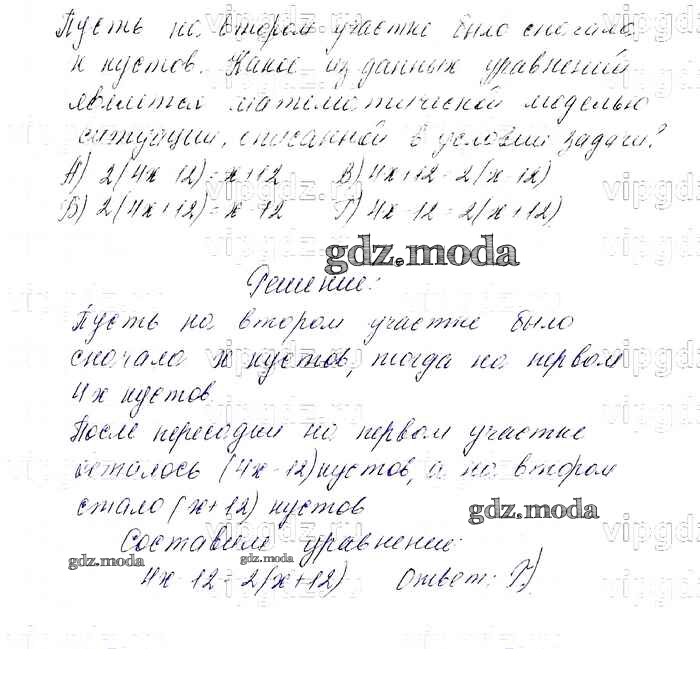 Пусть на втором участке было сначала
х кустов. Какое из данных уравнений
является математической моделью
ситуации, описанной в условии задачи?
А) 2(4х-12)=х+12 В) 4х+12=2(х-12)
Б) 2(4х+12)=х-12 Г) 4х-12=2(х+12)
gdz.moda
Решение:
Пусть на втором участке было
сначала х кустов, тогда на первом
4х кустов.
После пересадки на первом участке
осталось (4х-12) кустов, а на втором
стало (х+12) кустов
gdz.moda
Составим уравнение:
gdz.moda gdz.moda
4х-12=2(х+12) Ответ: Г)